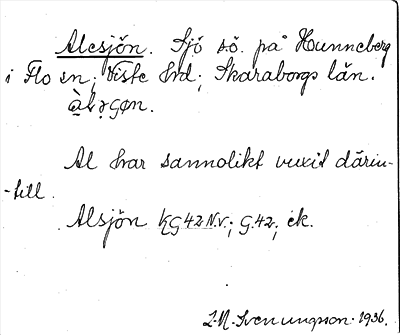 Alesjön. Sjö sö. på Hunneberg
i Flo sn; Viste hrd; Skaraborgs län.
Al har sannolikt vuxit därin-
-till.
Alsjön KG42N.v.; G.42; ek.
L.M. Svenungsson. 1936.